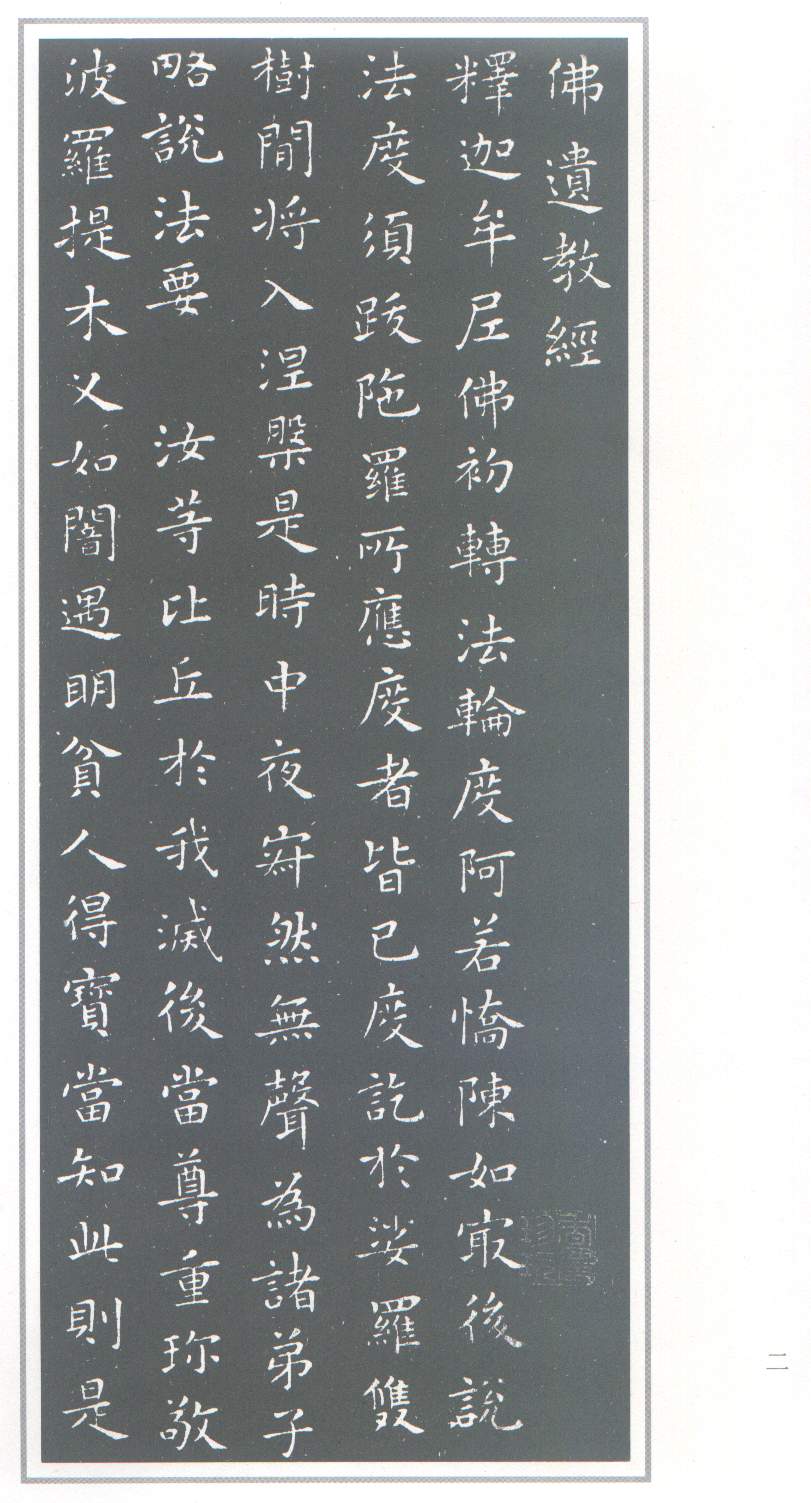 佛遺教經
釋迦牟尼佛初轉法輪度阿若憍陳如㝡後說
法度須跋陁羅所應度者皆已度訖於娑羅雙
樹間將入涅槃是時中夜寂然無聲為諸弟子
略說法要　汝等比丘於我滅後當尊重珎敬
波羅提木叉如闇遇明貧人得寶當知此則是
二